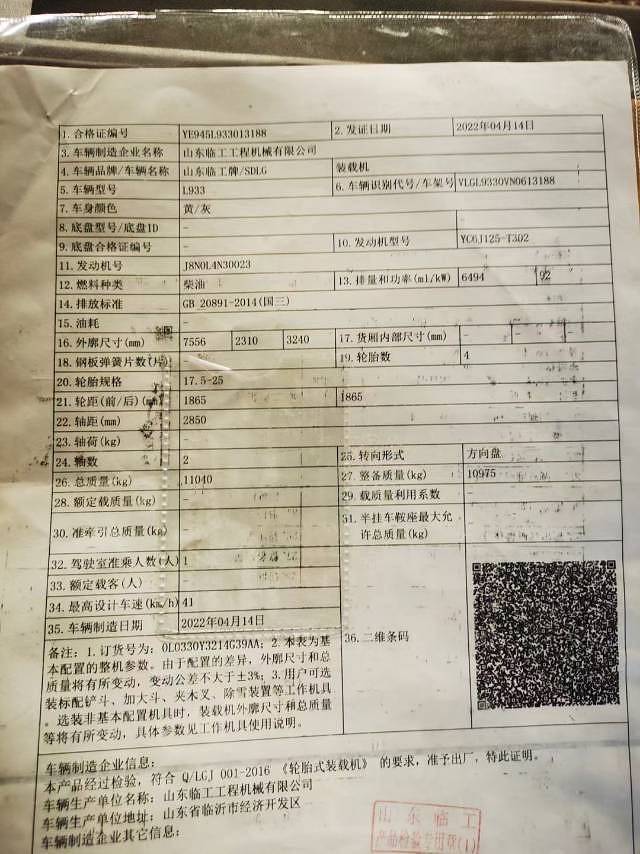 1. 合格证编号 YE945L933013188 2. 发证日期 2022年04月14日
3. 车辆制造企业名称 山东临工工程机械有限公司
4. 车辆品牌/车辆名称 山东临工牌/SDLG 装载机
5. 车辆型号 L933 6. 车辆识别代号/车架号 VLGL9330VN0613188
7. 车身颜色 黄/灰
8. 底盘型号/底盘ID -
9. 底盘合格证编号 - 10. 发动机型号 YC6J125-T302
11. 发动机号 J8N0L4N30023
12. 燃料种类 柴油 13. 排量和功率(ml/kW) 6494 92
14. 排放标准 GB 20891-2014(国三)
15. 油耗 -
16. 外廓尺寸(mm) 7556 2310 3240 17. 货厢内部尺寸(mm) - - -
18. 钢板弹簧片数(片) - 19. 轮胎数 4
20. 轮胎规格 17.5-25
21. 轮距(前/后)(mm) 1865 1865
22. 轴距(mm) 2850
23. 轴荷(kg) -
24. 轴数 2 25. 转向形式 方向盘
26. 总质量(kg) 11040 27. 整备质量(kg) 10975
28. 额定载质量(kg) - 29. 载质量利用系数 -
30. 准牵引总质量(kg) - 31. 半挂车鞍座最大允
许总质量(kg) -
32. 驾驶室准乘人数(人) 1
33. 额定载客(人) -
34. 最高设计车速(km/h) 41
35. 车辆制造日期 2022年04月14日
36. 二维条码
备注：1. 订货号为：0L0330Y3214G39AA；2. 本表为基
本配置的整机参数。由于配置的差异，外廓尺寸和总
质量将有所变动，变动公差不大于±3%；3. 用户可选
装标配铲斗、加大斗、夹木叉、除雪装置等工作机具
。选装非基本配置机具时，装载机外廓尺寸和总质量
等将有所变动，具体参数见工作机具使用说明。
车辆制造企业信息：
本产品经过检验，符合 Q/LGJ 001-2016 《轮胎式装载机》 的要求，准予出厂，特此证明。
车辆生产单位名称：山东临工工程机械有限公司
车辆生产单位地址：山东省临沂市经济开发区
车辆制造企业其它信息：
山东临工
产品检验专用章(1)